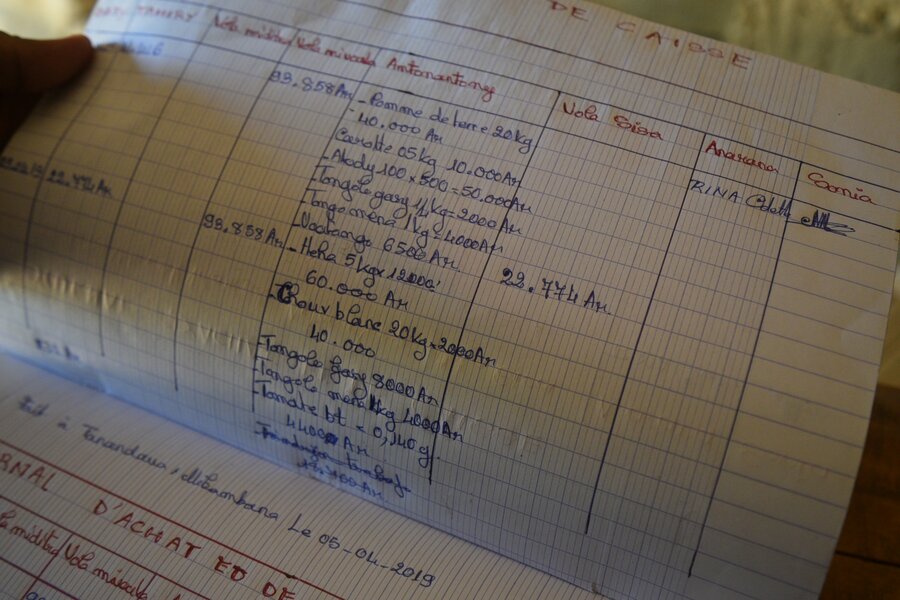 DE CAISSE
Vola miditra Vola mivoaka Antonantony Vola Sisa Anarana Sonia
93.858 Ar
- Pomme de terre 20kg
40.000 Ar
Carotte 05kg 10.000 Ar
- Atody 100 x 500 = 50.000 Ar
- Tongolo gasy 1/4 kg = 2000 Ar
- Tongo mena 1kg = 4000 Ar
- Voatango 6500 Ar
93.858 Ar - Hena 5kg x 12000
60.000 Ar
- Choux blanc 20kg x 2000 Ar
40.000
- Tongolo gasy 8000 Ar
- Tongolo mena 1kg 4000 Ar
- Tomate bt = 0,140g
4400 Ar
22.774 Ar
22.774 Ar
RINA
Fait à Tanandava, le 05-04-2019
D'ACHAT ED DE
miditra Vola